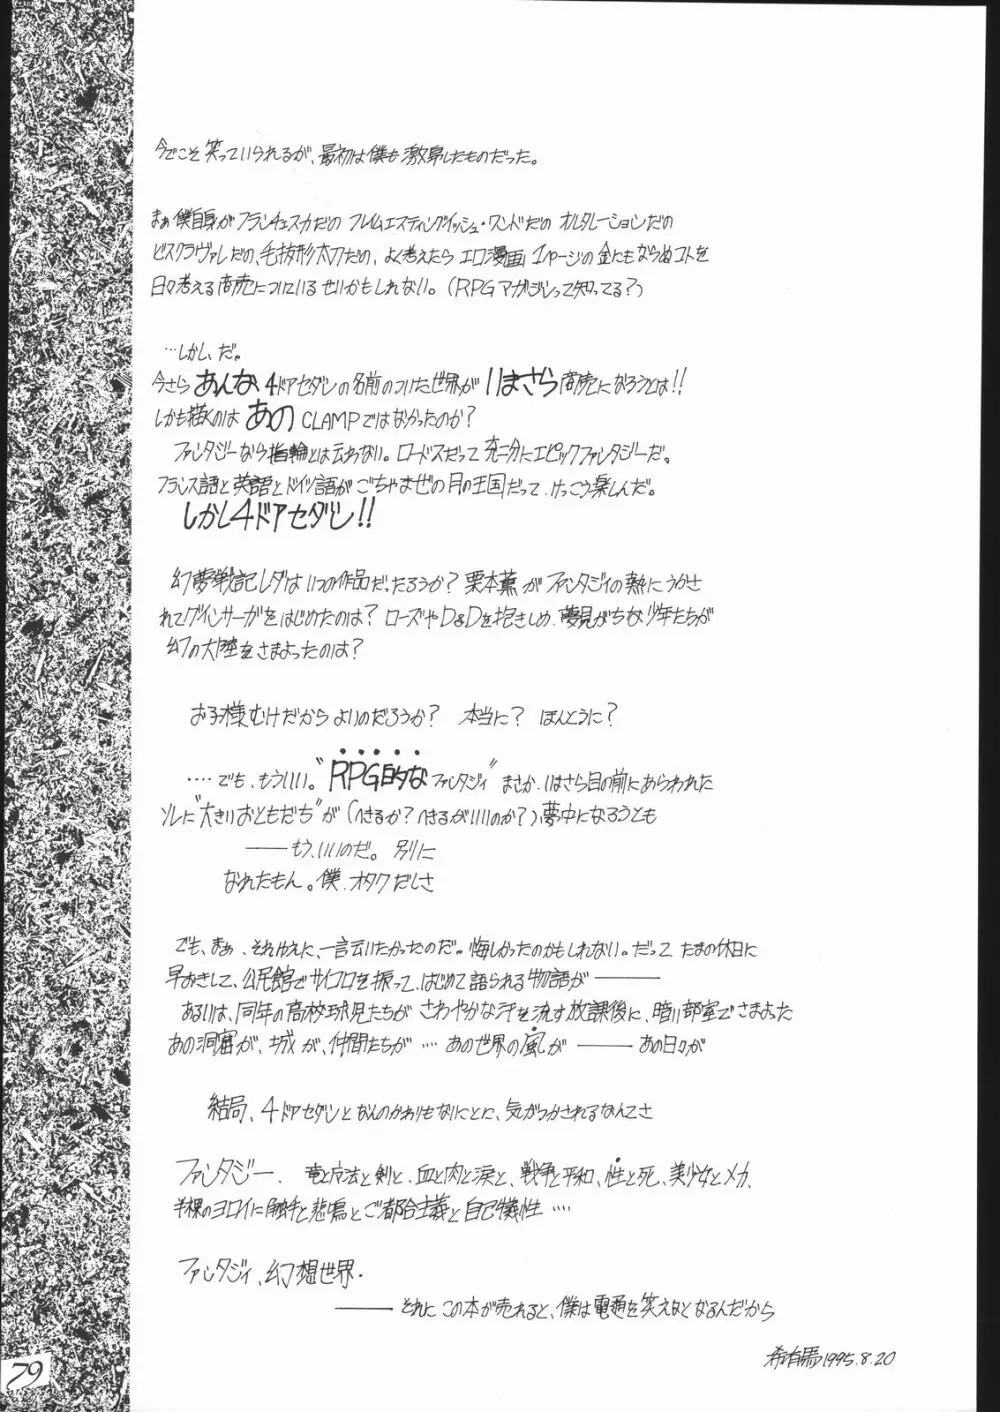 今でこそ笑っていられるが、最初は僕も激昂したものだった。
まぁ僕自身がフランチェスカだの フレイムエスティングイッシュ・ワンドだの オルタレーションだの
ビスクラヴァレだの、毛抜形太刀だの、よく考えたら エロ漫画 1ページの金にもならぬコトを
日々考える商売についているせいかもしれない。(RPGマガジンって知ってる?)
…しかし、だ。
今さら あんな 4ドアセダンの名前のついた世界が いまさら 商売になろうとは!!
しかも描くのは あの CLAMPではなかったのか?
ファンタジーなら指輪とは云わない。ロードスだって 充二分にエピックファンタジーだ。
フランス語と英語とドイツ語が ごちゃまぜの月の王国だって、けっこう楽しんだ。
しかし4ドアセダン!!
幻夢戦記レダは いつの作品だったろうか? 栗本薫が ファンタジィの熱にうかさ
れてグインサーガをはじめたのは? ローズやD&Dを抱きしめ、夢見がちな少年たちが
幻の大陸をさまよったのは?
お子様むけだから よいのだろうか? 本当に? ほんとうに?
‥‥でも、もういい。“RPG的な ファンタジィ” まさか、いまさら目の前にあらわれた
ソレに“大きいおともだち”が(へきるか?へきるがいいのか?)夢中になろうとも
――もう、いいのだ。別に
なれたもん。僕、オタクだしさ
でも、まぁ、それゆえに、一言云いたかったのだ。悔しかったのかもしれない。だって、たまの休日に
早おきして、公民館でサイコロを振って、はじめて語られる物語が――
あるいは、同年の高校球児たちが さわやかな汗を流す放課後に、暗い部室でさまよった
あの洞窟が、城が、仲間たちが ‥‥ あの世界の風が ――あの日々が
結局、4ドアセダンとなんのかわりもないことに、気がつかされるなんてさ
ファンタジー、 竜と魔法と剣と、血と肉と涙と、戦争と平和、性と死、美少女とメカ、
半裸のヨロイに触手と悲鳴とご都合主義と自己犠牲‥‥
ファンタジィ、幻想世界・
――それに この本が売れると、僕は電通を笑えなくなるんだから
希有馬 1995.8.20
79